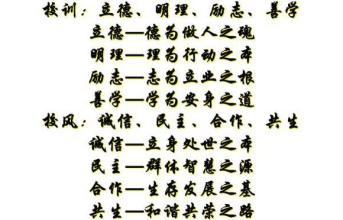 校训：立德、明理、励志、善学
立德—德为做人之魂
明理—理为行动之本
励志—志为立业之根
善学—学为安身之道
校风：诚信、民主、合作、共生
诚信—立身处世之本
民主—群体智慧之源
合作—生存发展之基
共生—和谐共荣之路